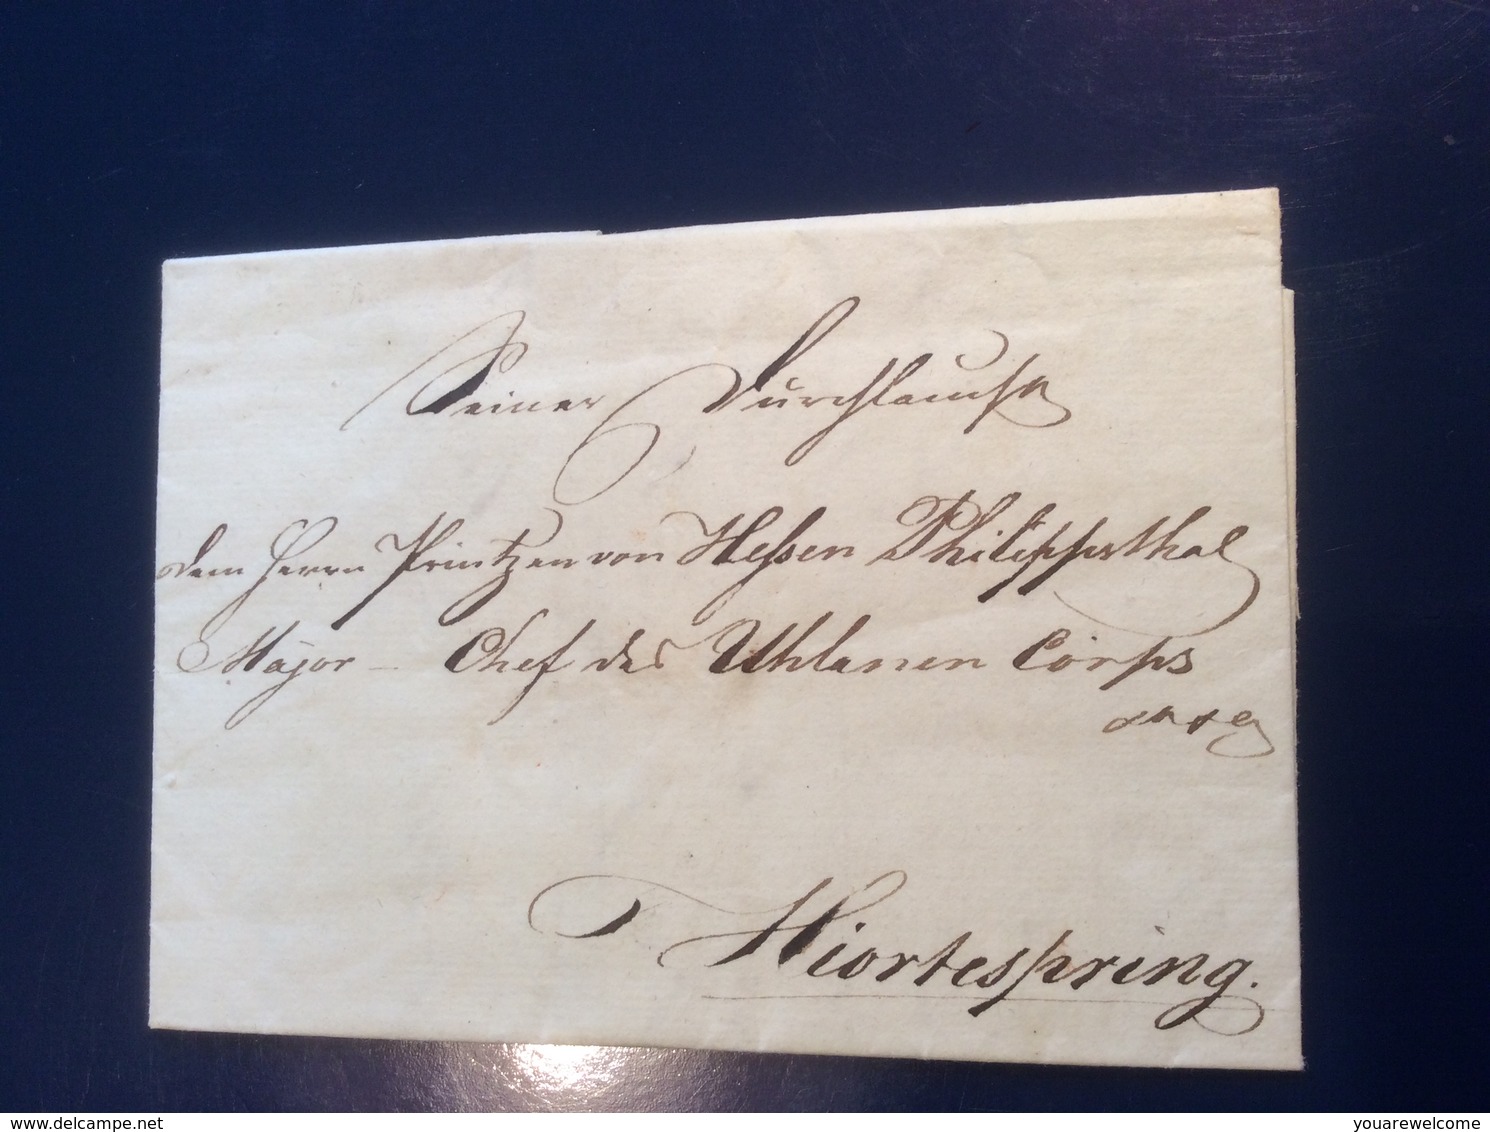 Seiner Durchlaucht
dem Herrn Printzen von Hessen Philippsthal
Major – Chef des Uhlanen Corps
Hiortespring.
www.delcampe.net
youarewelcome